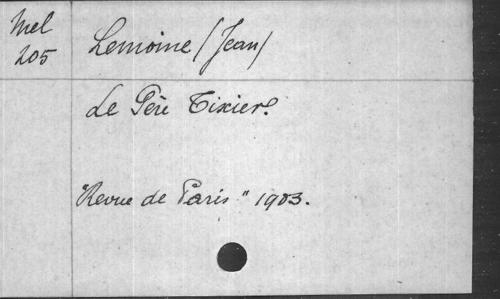 Mel
205
Lemoine (Jean)
Le Père Tixier.
"Revue de Paris" 1903.